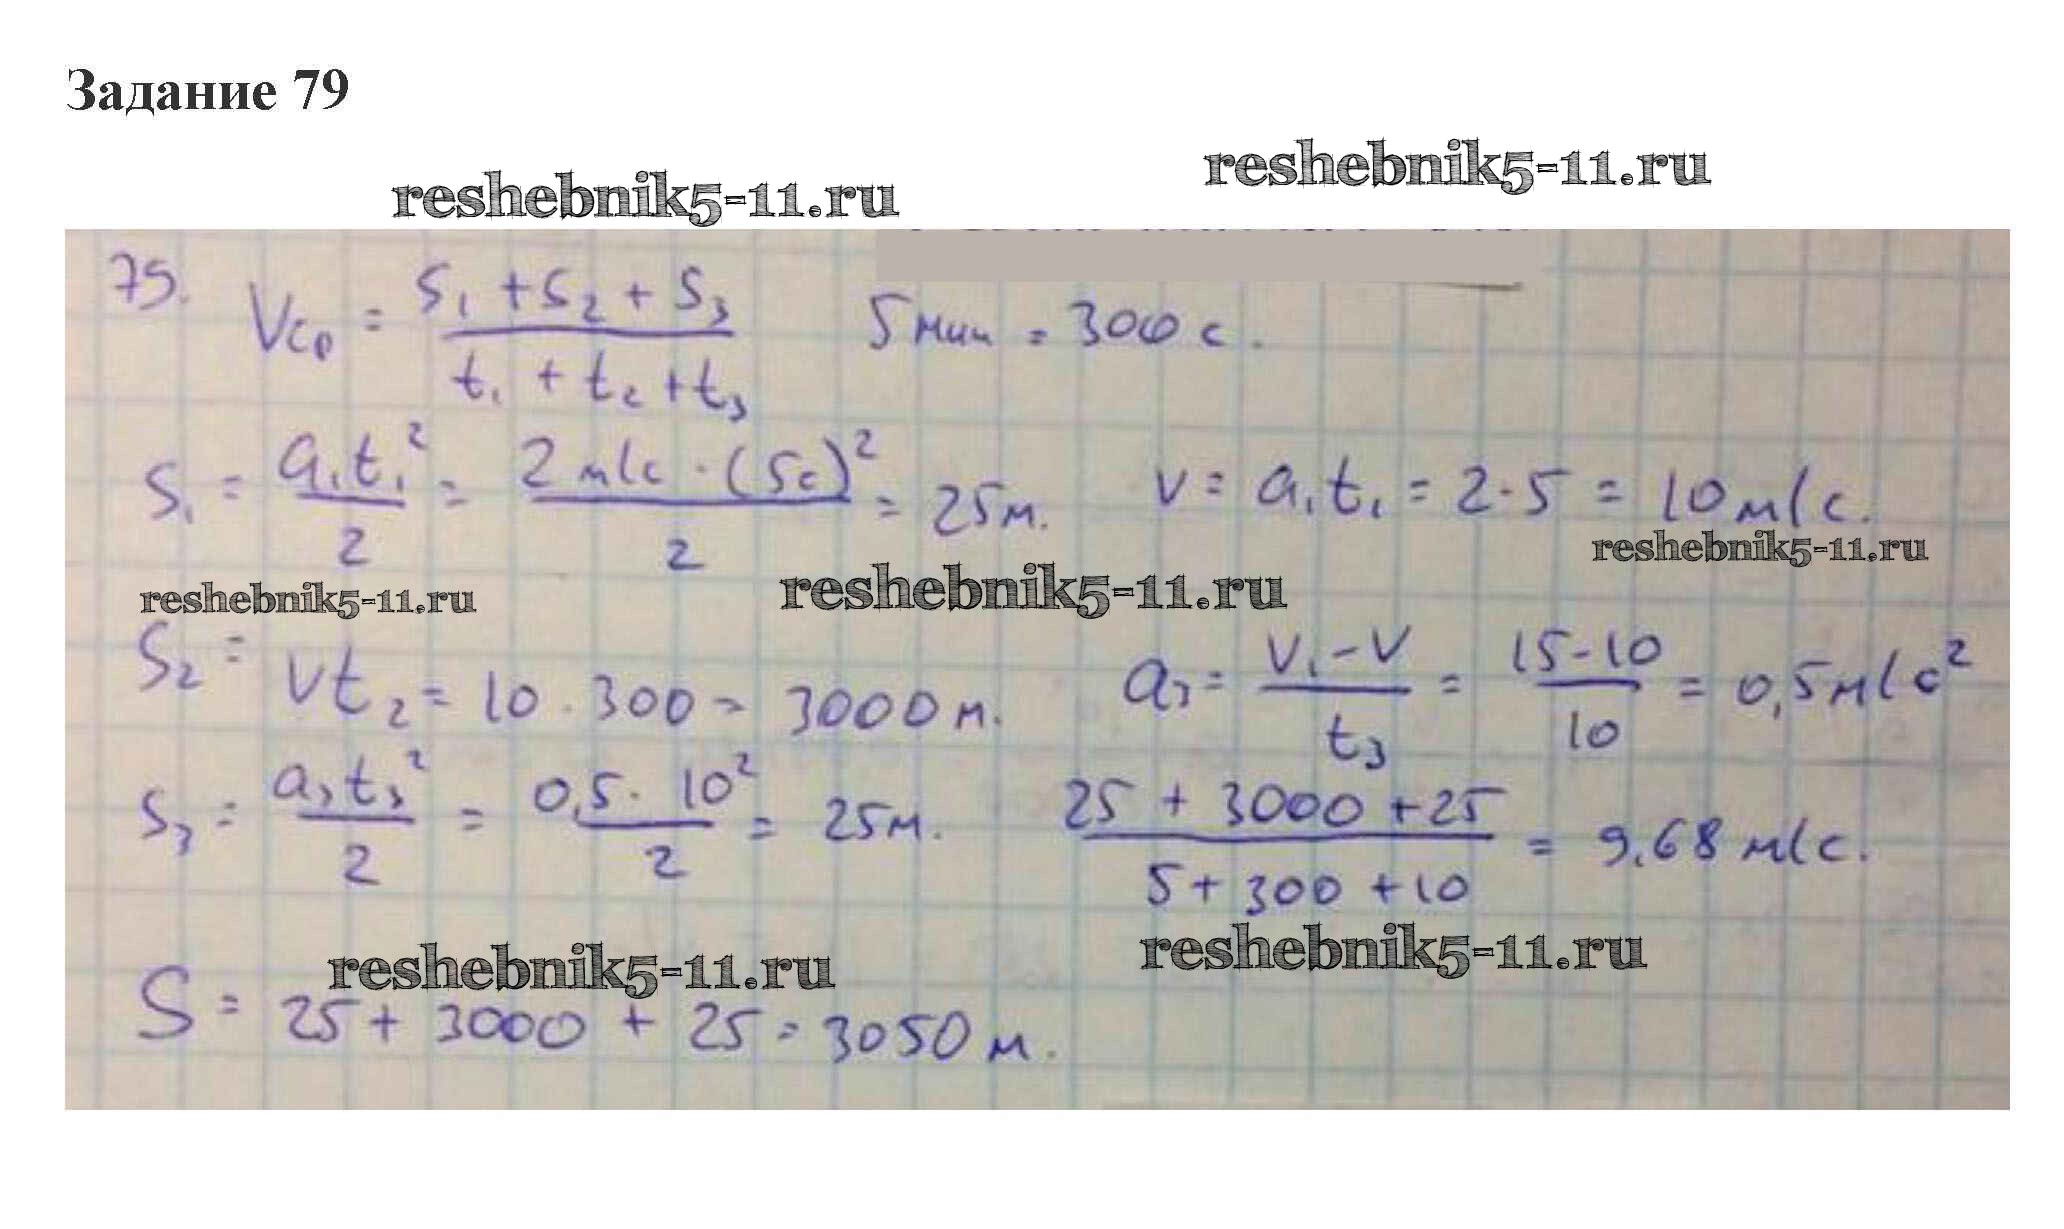 Задание 79
reshebnik5-11.ru
reshebnik5-11.ru
79. Vср = (S₁ + S₂ + S₃) / (t₁ + t₂ + t₃)    5 мин = 300 с.
S₁ = a₁t₁² / 2 = 2 м/с · (5с)² / 2 = 25 м.    v = a₁t₁ = 2 · 5 = 10 м/с.
reshebnik5-11.ru
reshebnik5-11.ru
reshebnik5-11.ru
S₂ = vt₂ = 10 · 300 = 3000 м.    a₃ = (v₁ - v) / t₃ = (15 - 10) / 10 = 0,5 м/с²
S₃ = a₃t₃² / 2 = 0,5 · 10² / 2 = 25 м.    (25 + 3000 + 25) / (5 + 300 + 10) = 9,68 м/с.
reshebnik5-11.ru
reshebnik5-11.ru
S = 25 + 3000 + 25 = 3050 м.